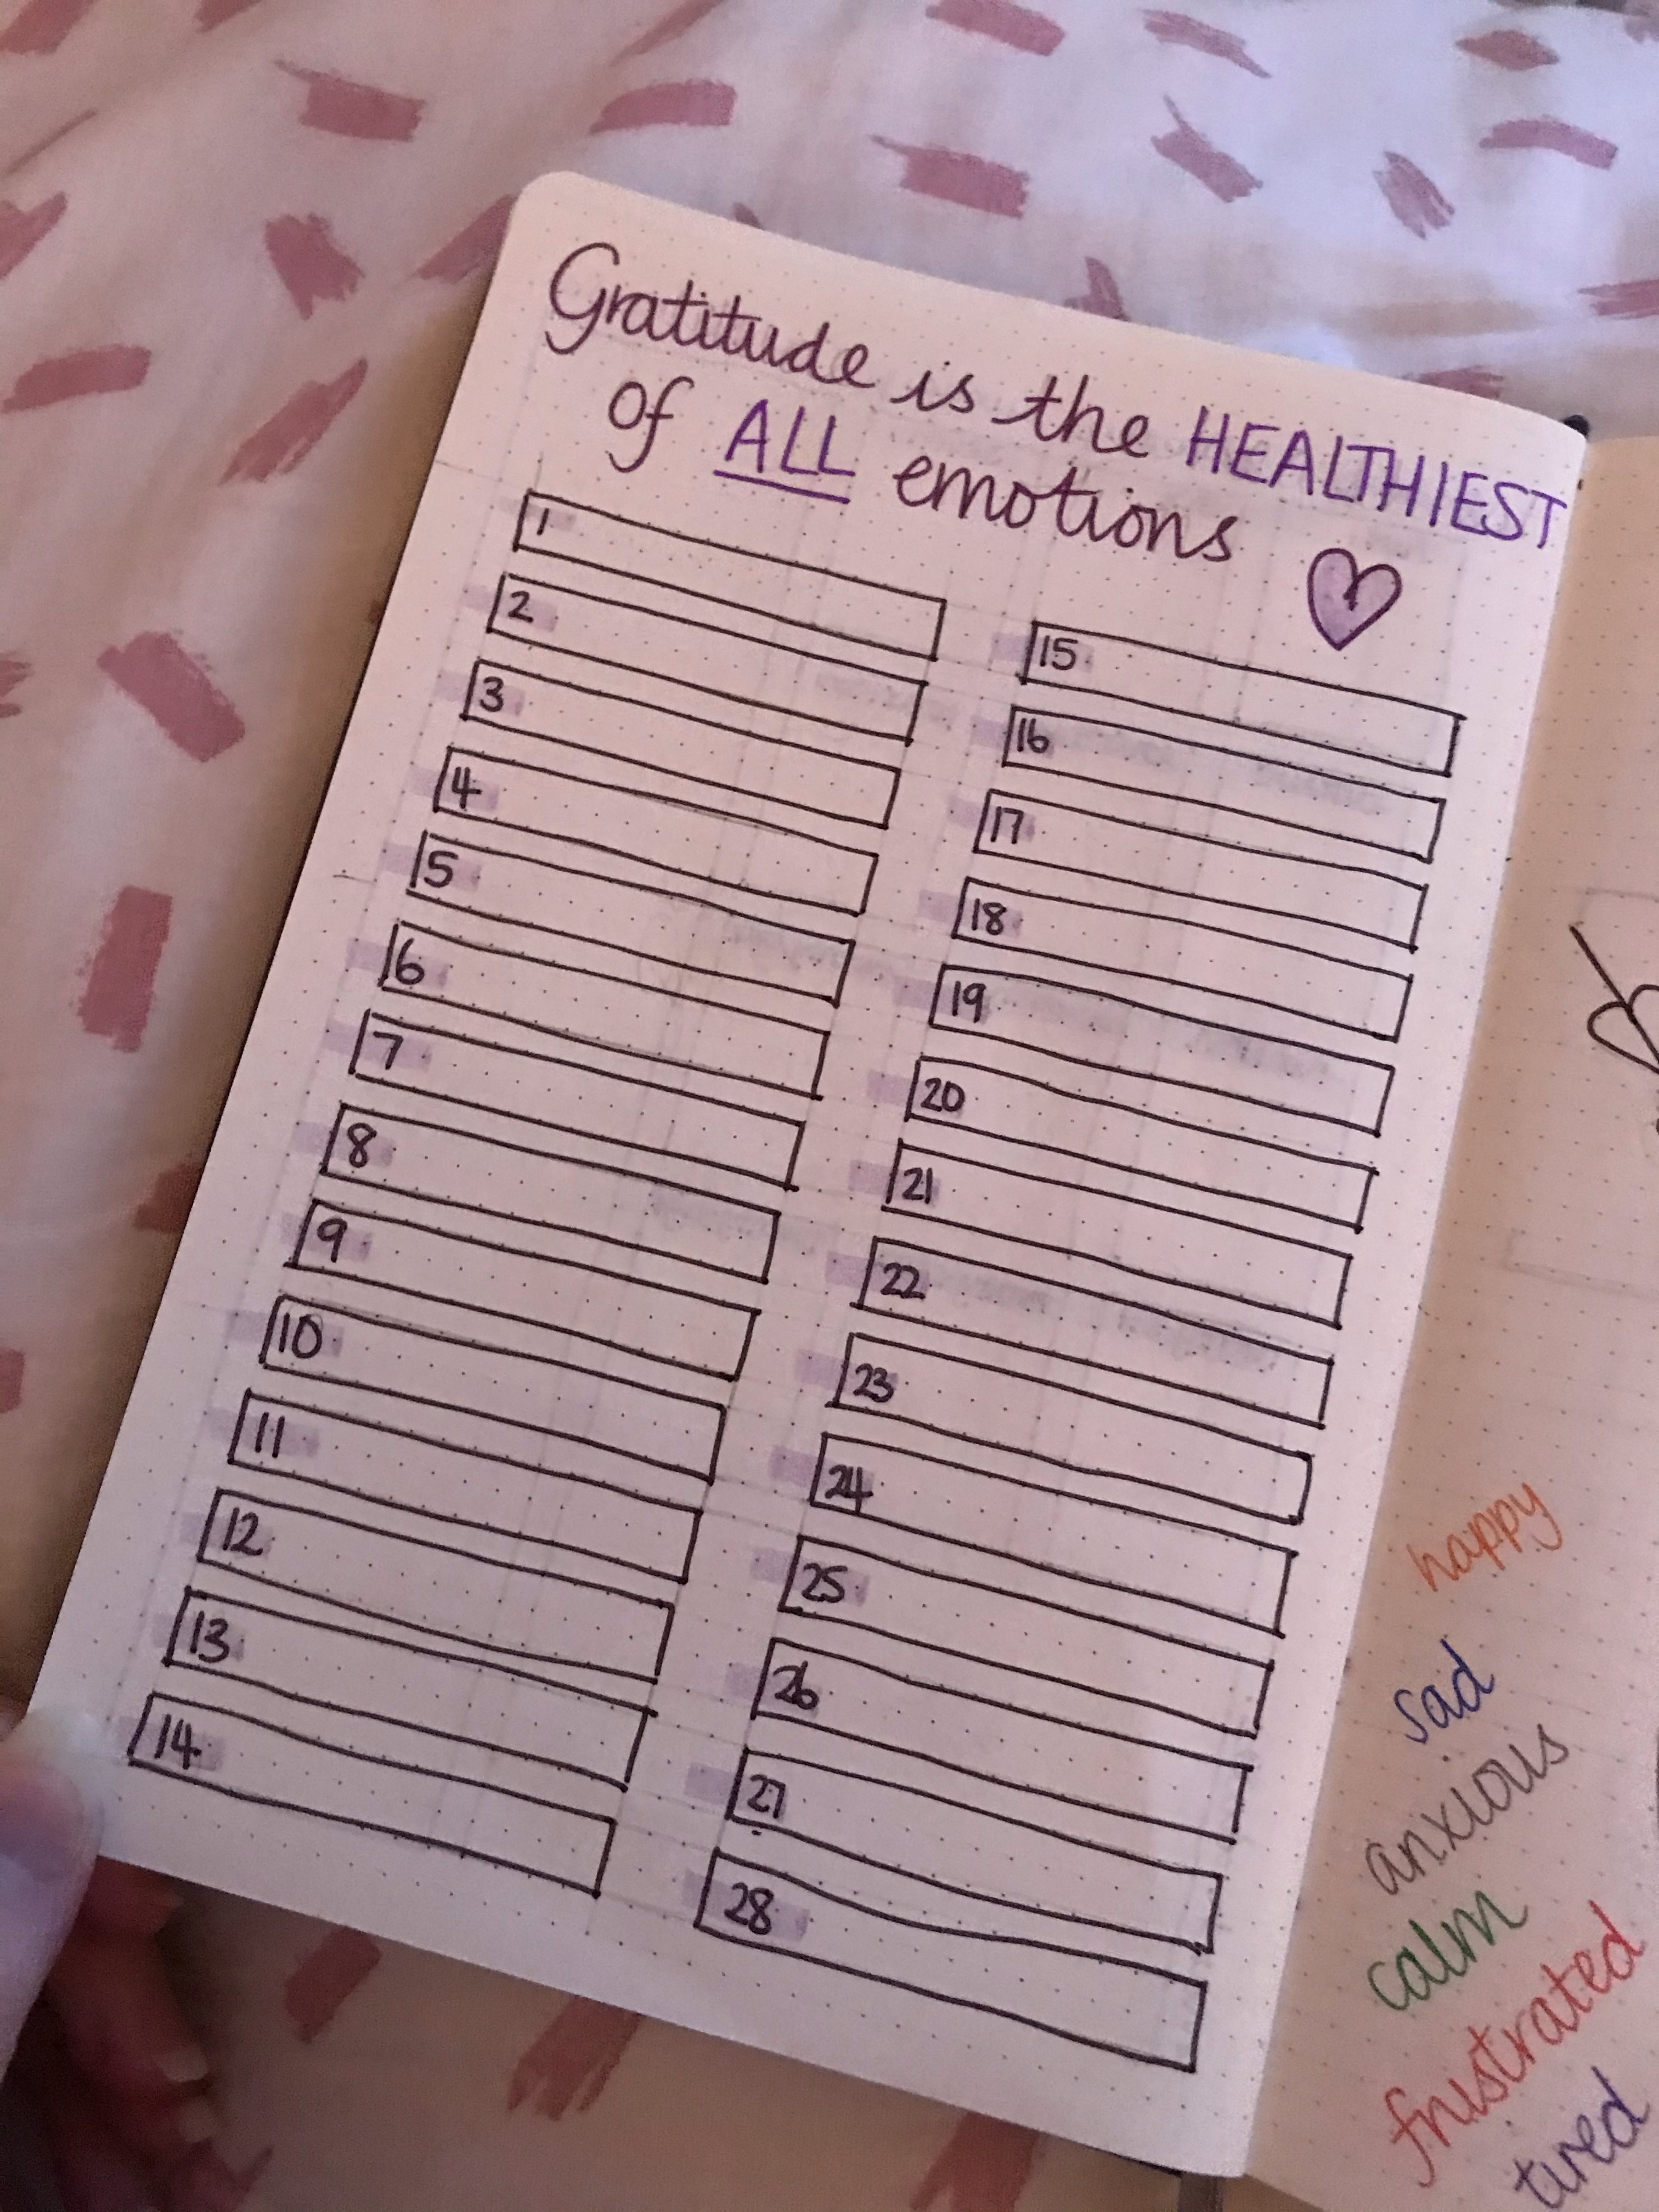 Gratitude is the HEALTHIEST
of ALL emotions
1
2
3
4
5
6
7
8
9
10
11
12
13
14
15
16
17
18
19
20
21
22
23
24
25
26
27
28
happy
sad
anxious
calm
frustrated
tired